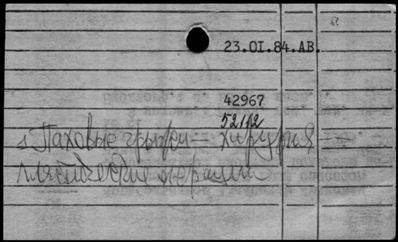 23.01.84.АВ.
42967
52112
1 Паховые грыжи — хирургия —
пластические операции